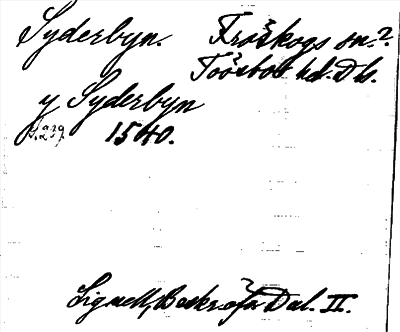 Syderbyn. Fröskogs sn.?
Tössbo hd. Db.
y Syderbyn
1540.
Lignell, Beskr. öfr Dal. II.